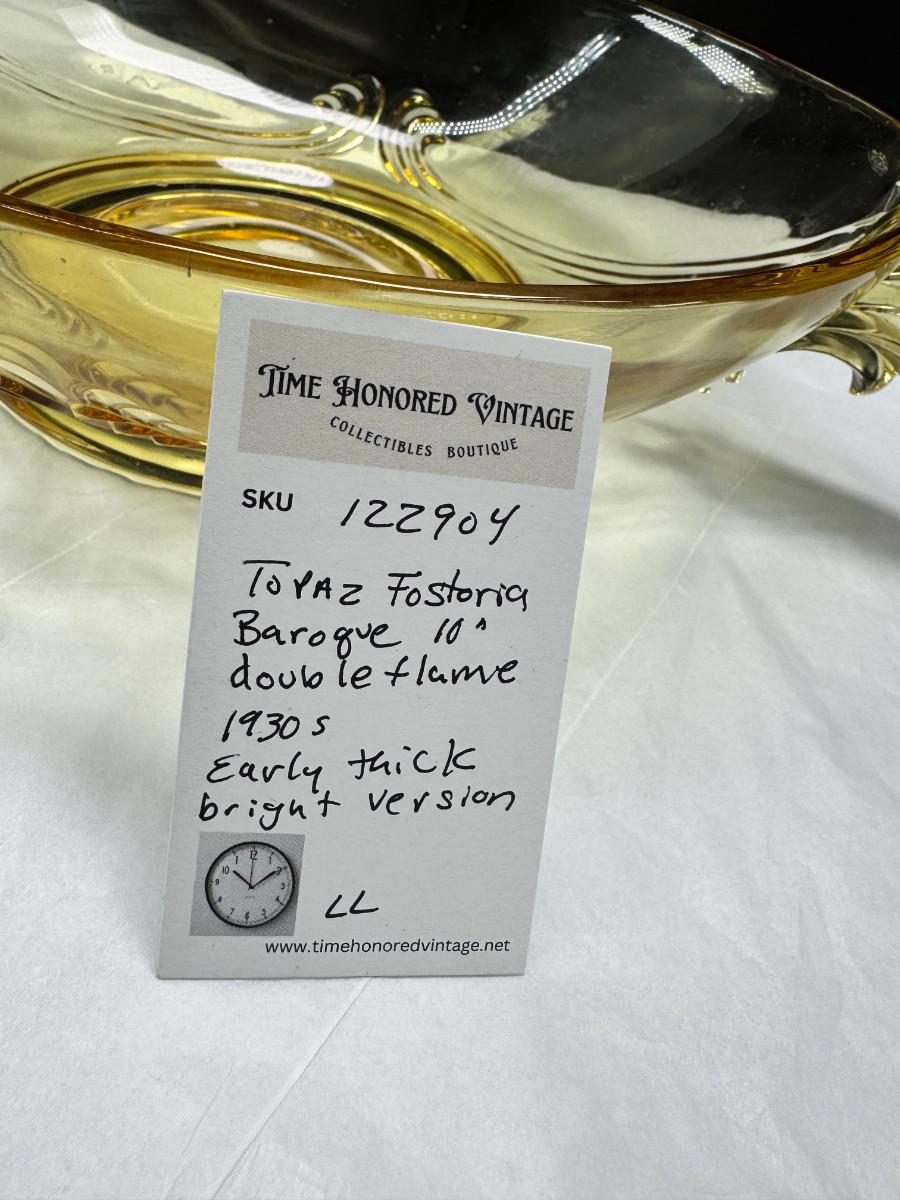 TIME HONORED VINTAGE
COLLECTIBLES BOUTIQUE
SKU 122904
TOPAZ Fostoria
Baroque 10"
double flame
1930s
Early thick
bright version
12 1 2 3 4 5 6 7 8 9 10 11
LL
www.timehonoredvintage.net